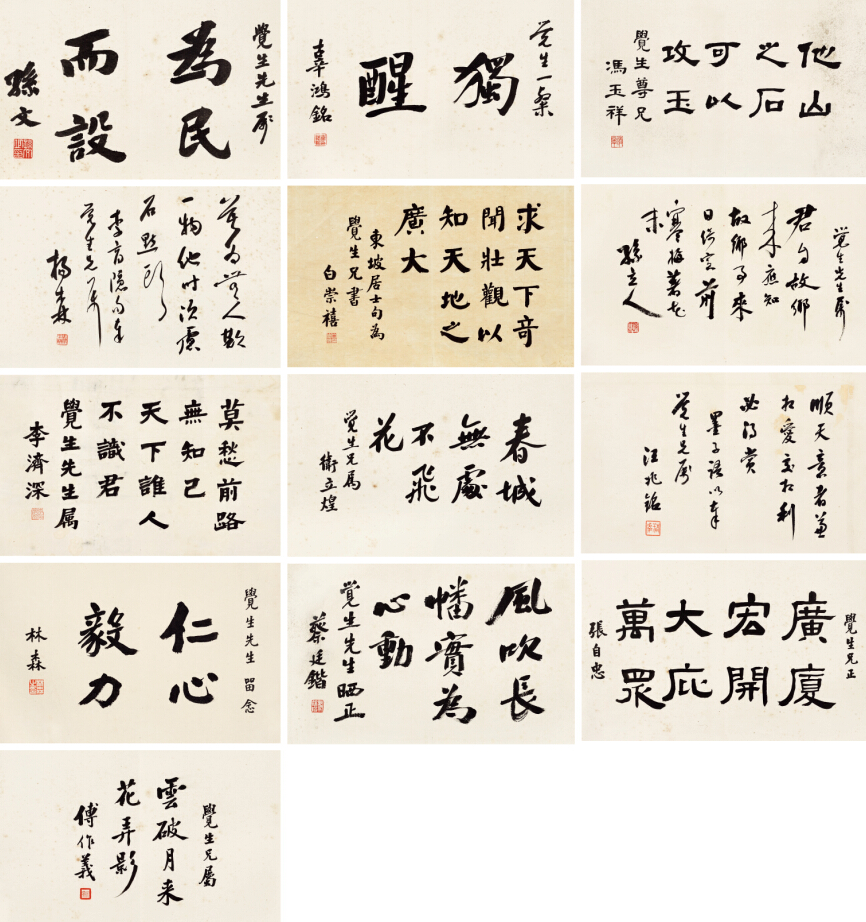 覺生先生屬
為民
而設
孫文
覺生一粲
獨
醒
辜鴻銘
他山
之石
可以
攻玉
覺生尊兄
馮玉祥
莫為世人欺
一物他時須慮
石點頭
李商隱句奉
覺生兄屬
楊森
求天下奇
聞壯觀以
知天地之
廣大
東坡居士句為
覺生兄書
白崇禧
覺生先生屬
君自故鄉
來應知
故鄉事來
日綺窗前
寒梅著花
未
孫立人
莫愁前路
無知己
天下誰人
不識君
覺生先生属
李濟深
春城
無處
不飛
花
覺生兄屬
衛立煌
順天意者兼
相愛交相利
必得賞
墨子語以奉
覺生兄屬
汪兆銘
覺生先生 留念
仁心
毅力
林森
風吹長
幡實為
心動
覺生先生晒正
蔡廷鍇
覺生兄正
廣廈
宏開
大庇
萬眾
張自忠
覺生兄屬
雲破月来
花弄影
傅作義